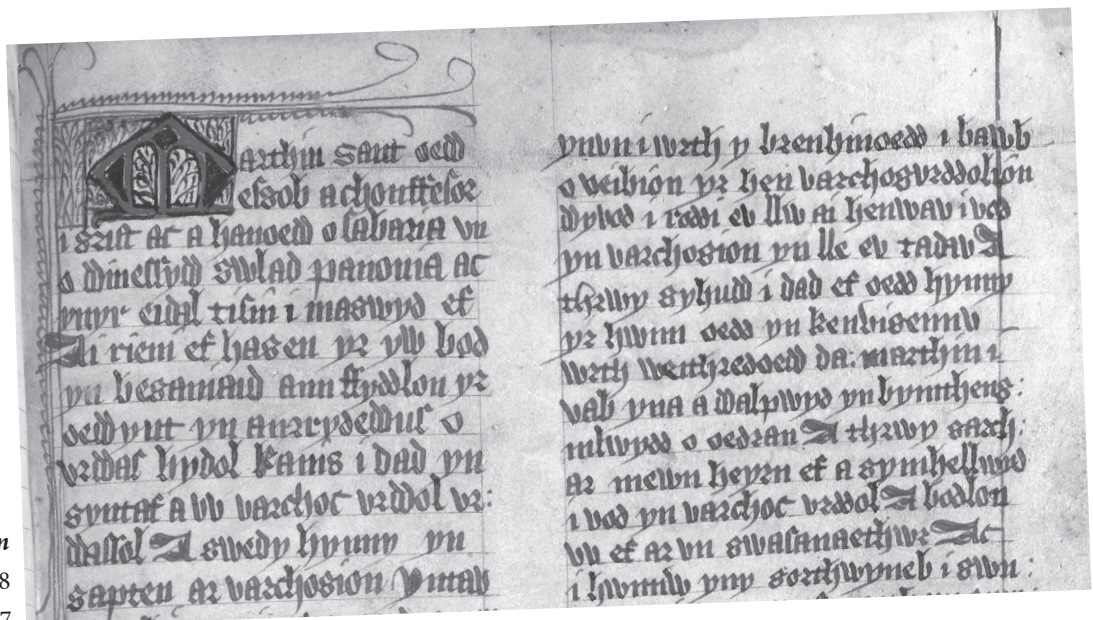 Marthin sant oedd
essob a chonffesor
i grist ac a hanoedd o sabaria vn
o ddinessydd gwlad panonia ac
ynyr eidal tisin i magwyd ef
Ai rieni ef hagen yr yw bod
yn beganiaid ann ffyddlon yr
oeddynt yn anrrydeddus o
vrddas bydol kanis i dad yn
gyntaf a vv varchoc vrddol vr:
ddassol A gwedy hynny yn
gapten ar varchogion yntav
ynvn i wrth y brenhinoedd i bawb
o veibion yr hen varchogvrddolion
ddyvod i roddi ev lliw ai henwav i vod
yn varchogion yn lle ev tadav A
thrwy gyhudd i dad ef oedd hynny
yr hwnn oedd yn kenbigennv
wrth weithredoedd da: marthin i
vab yna a ddalpwyd yn bymtheng:
mlwydd o oedran A thrwy garch:
ar mewn heyrn ef a gymhellwyd
i vod yn varchoc vrddol A bodlon
vv ef ar vn gwasanaethwr Ac
i hwnnw yny gorthwyneb i gwn:
n
8
7